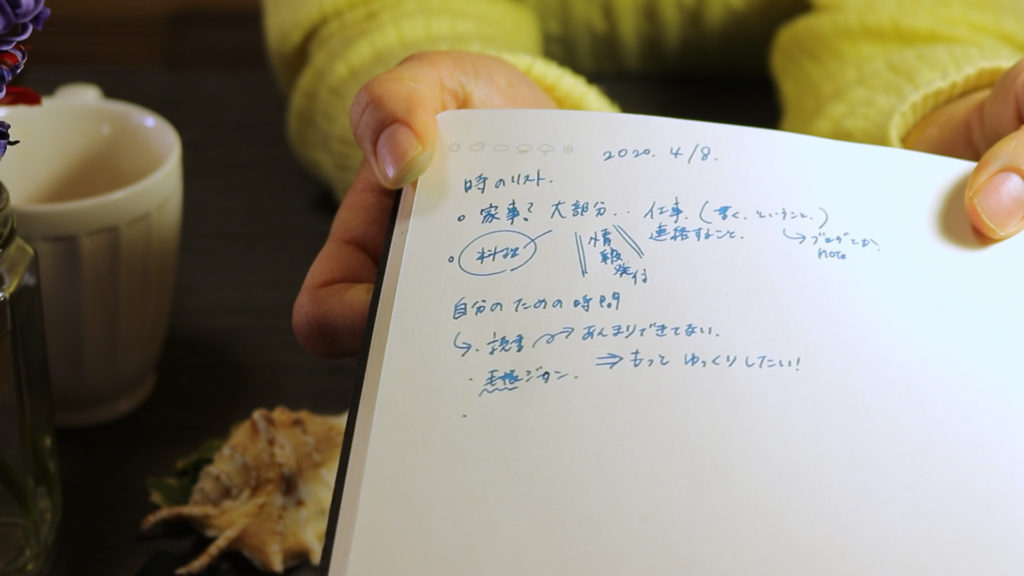 2020. 4/8.
時のリスト.
。家事? 大部分.. 仕事. (書く、ということ.)
連絡すること. ↳ ブログとか note
。料理
情報発信
自分のための時間
↳. 読書 → あんまりできてない.
⇒ もっと ゆっくりしたい!
・手帳ジカン.
・